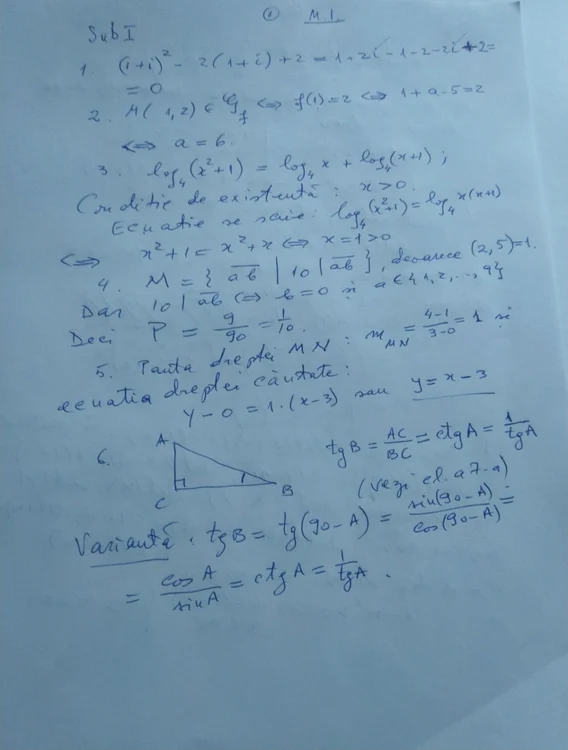 ① M.1.
Sub I
1. (1+i)² - 2(1+i)+2 = 1+2i-1-2-2i+2=
= 0
2. M(1,2) ∈ G_f ⇔ f(1)=2 ⇔ 1+a-5=2
⇔ a=6.
3. log₄(x²+1) = log₄ x + log₄(x+1) ;
Condiție de existență : x>0.
Ecuatie se scrie: log₄(x²+1) = log₄ x(x+1)
⇔ x²+1 = x²+x ⇔ x=1>0
4. M = { ab | 10 | ab }, deoarece (2,5)=1.
Dar 10 | ab ⇔ b=0 și a∈{1,2,...,9}
Deci P = 9/90 = 1/10.
5. Panta dreptei MN : m_MN = (4-1)/(3-0) = 1 și
ecuatia dreptei căutate:
y-0 = 1·(x-3) sau y = x-3
6. A C B tg B = AC/BC = ctg A = 1/tg A
(vezi cl. a 7-a)
Variantă : tg B = tg(90-A) = sin(90-A)/cos(90-A) =
= cos A/sin A = ctg A = 1/tg A .